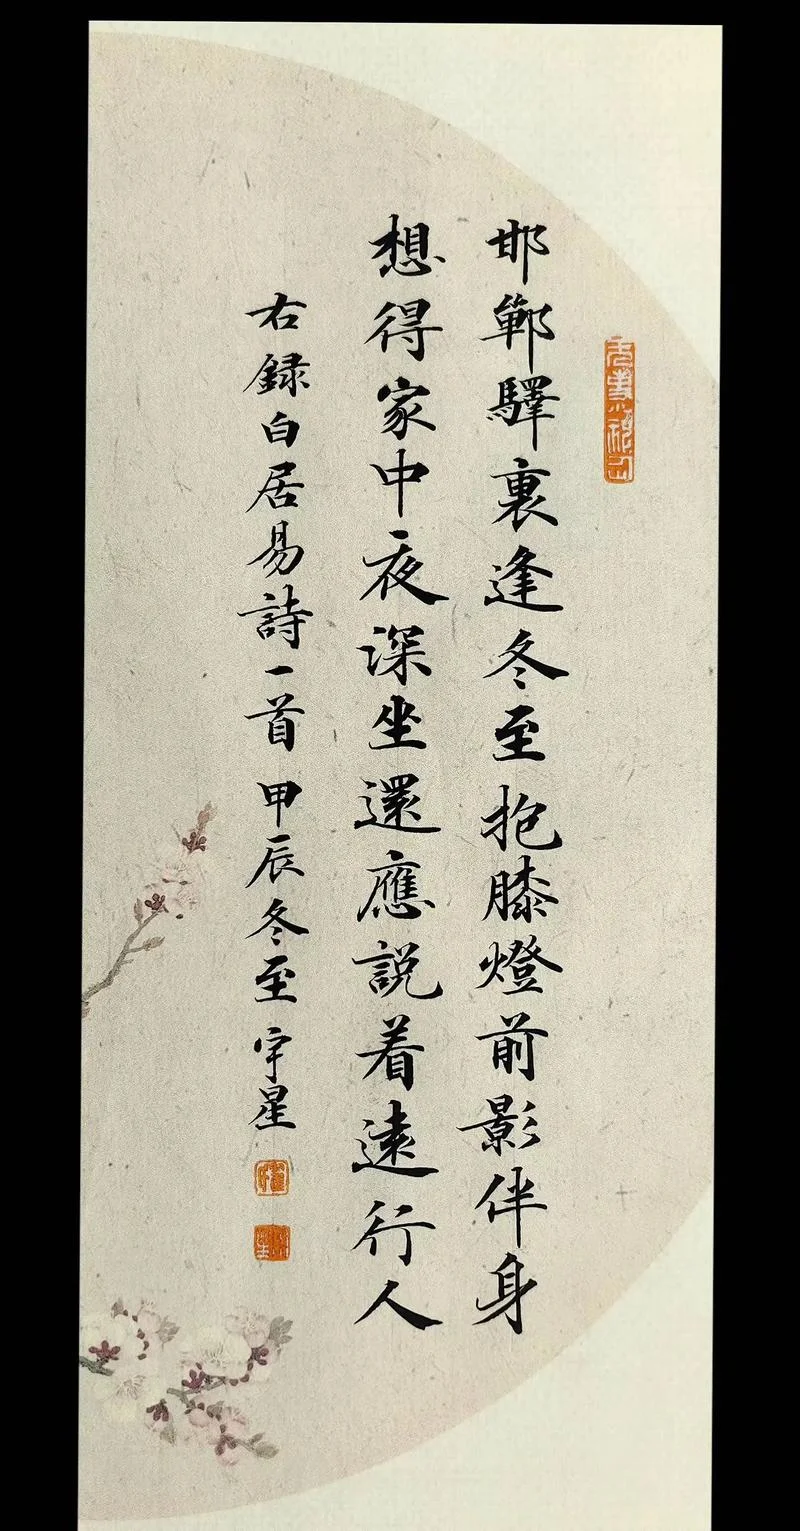 邯鄲驛裏逢冬至抱膝燈前影伴身
想得家中夜深坐還應說着遠行人
右録白居易詩一首 甲辰冬至 宇星